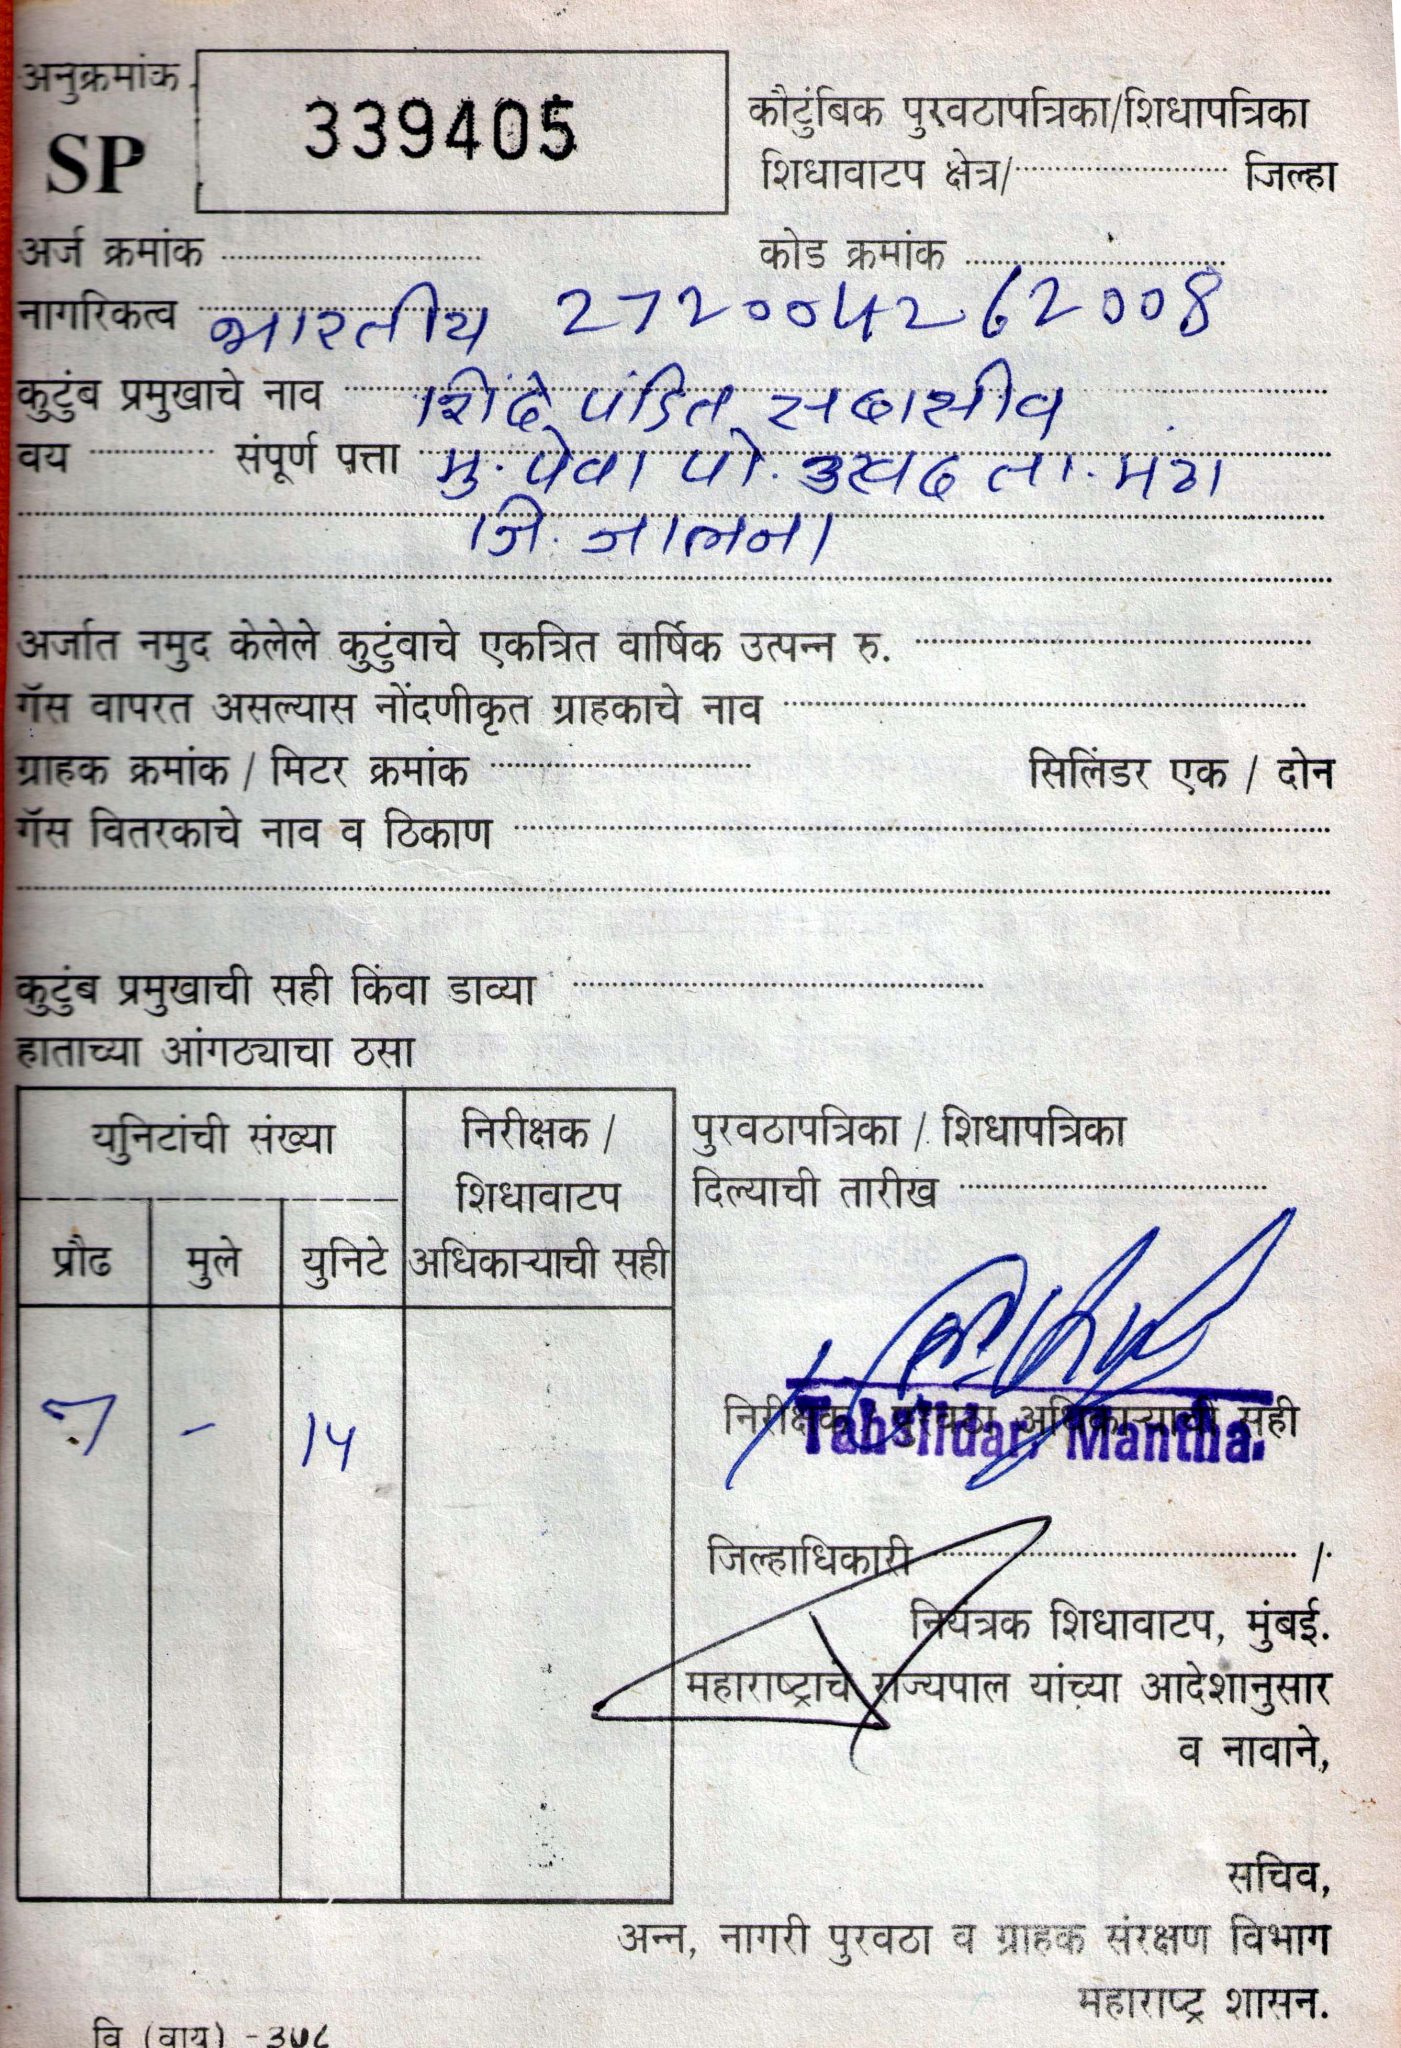 अनुक्रमांक
SP 339405
कौटुंबिक पुरवठापत्रिका/शिधापत्रिका
शिधावाटप क्षेत्र/ जिल्हा
अर्ज क्रमांक कोड क्रमांक
नागरिकत्व भारतीय 272004262008
कुटुंब प्रमुखाचे नाव शिंदे पंडित सदाशीव
वय संपूर्ण पत्ता मु. पेवा पो. उस्वद ता. मंठा
जि. जालना
अर्जात नमुद केलेले कुटुंवाचे एकत्रित वार्षिक उत्पन्न रु.
गॅस वापरत असल्यास नोंदणीकृत ग्राहकाचे नाव
ग्राहक क्रमांक / मिटर क्रमांक सिलिंडर एक / दोन
गॅस वितरकाचे नाव व ठिकाण
कुटुंब प्रमुखाची सही किंवा डाव्या
हाताच्या आंगठ्याचा ठसा
युनिटांची संख्या
निरीक्षक /
शिधावाटप
अधिकाऱ्याची सही
प्रौढ मुले युनिटे
7 - 14
पुरवठापत्रिका / शिधापत्रिका
दिल्याची तारीख
निरीक्षक / पुरवठा अधिकाऱ्याची सही
Tahsildar Mantha.
जिल्हाधिकारी /
नियंत्रक शिधावाटप, मुंबई.
महाराष्ट्राचे राज्यपाल यांच्या आदेशानुसार
व नावाने,
सचिव,
अन्न, नागरी पुरवठा व ग्राहक संरक्षण विभाग
महाराष्ट्र शासन.
वि (वाय) -३७८